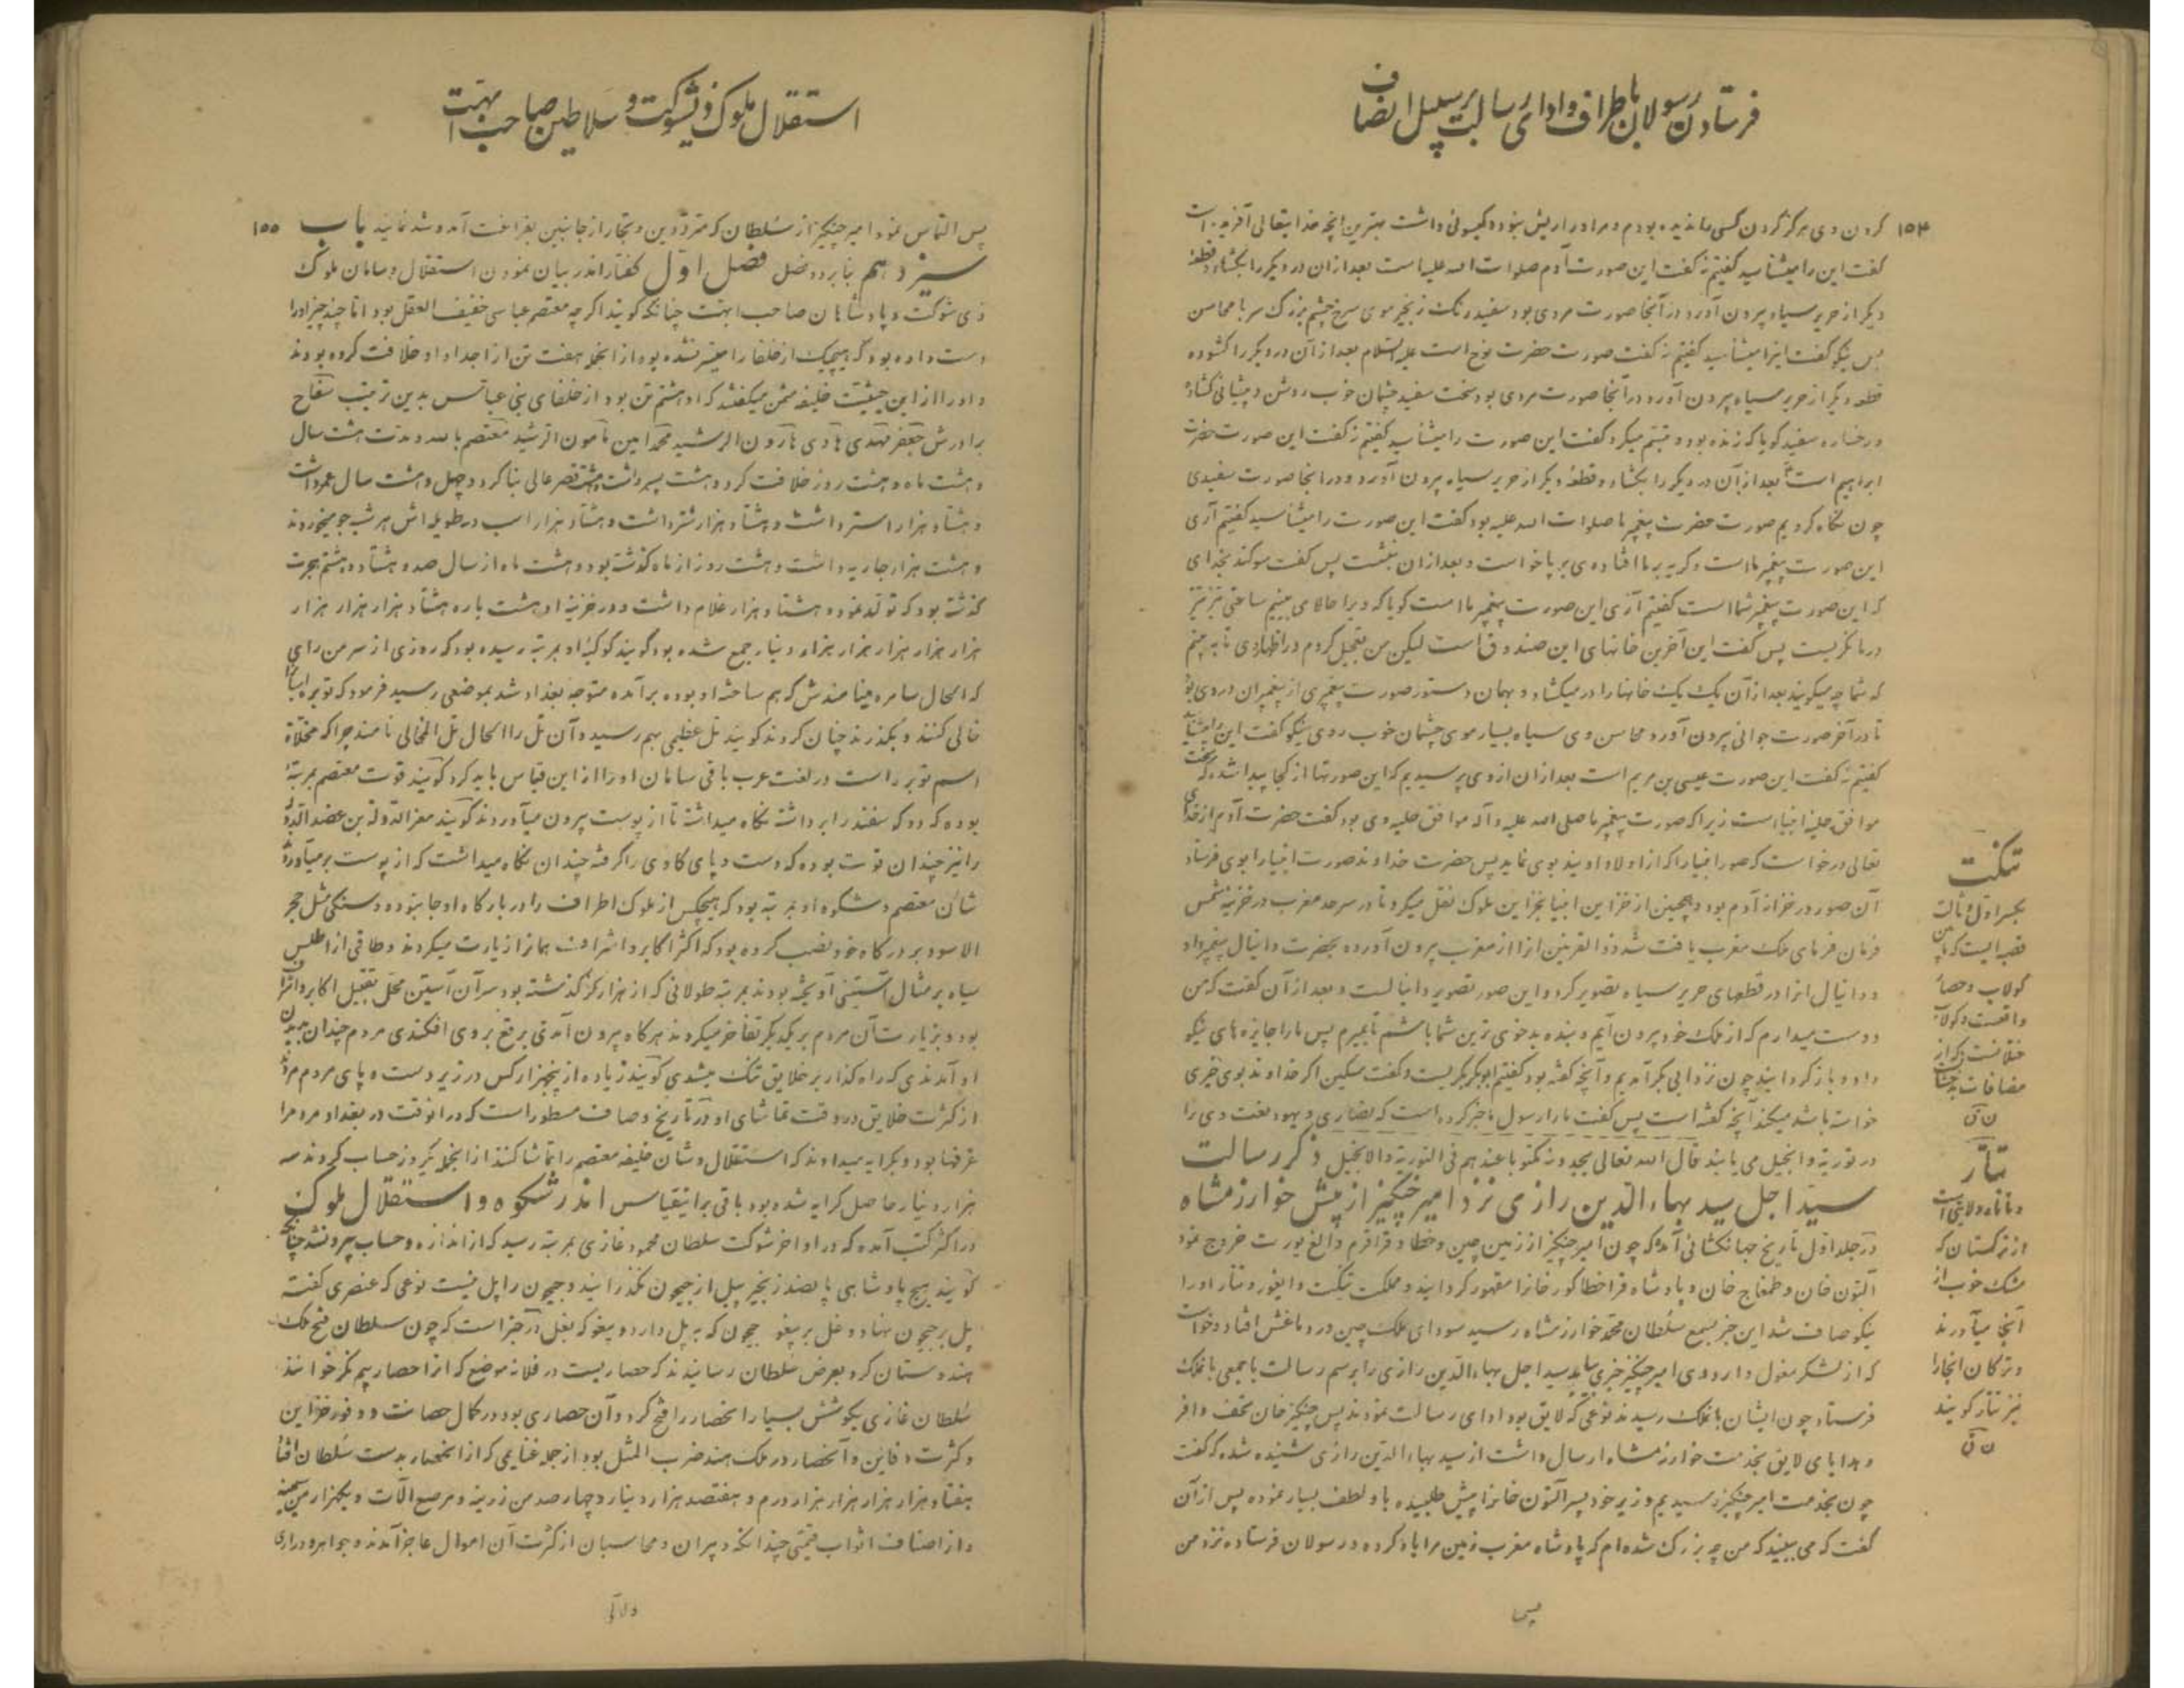 فرستادن رسولان باطراف و ادای رسالت بر سبیل انصاف
۱۵۴
کردن وی هرگز گردن کسی ما ندیده بودیم و مر او را ریش نبود و گیسو نی داشت بهترین آنچه خدایتعالی آفریده است
گفت این را میشناسید گفتیم نه گفت این صورت آدم صلوات الله علیه است بعد از آن در دیگر را بگشاد و قطعهٔ
دیگر از حریر سیاه بیرون آورد در آنجا صورت مردی بود سفید رنگ زنجیر موی سرخ چشم بزرگ سر با محاسن
بس نیکو گفت اینرا میشناسید گفتیم نه گفت صورت حضرت نوح است علیه السلام بعد از آن در دیگر را گشوده
قطعه دیگر از حریر سیاه بیرون آورد در آنجا صورت مردی بود سخت سفید چشمان خوب روشن و پیشانی گشاده
و رخساره سفید گویا که زنده بود و تبسم میکرد گفت این صورت را میشناسید گفتیم نه گفت این صورت حضرت
ابراهیم است بعد از آن در دیگر را بگشاد و قطعهٔ دیگر از حریر سیاه بیرون آورد و در آنجا صورت سفیدی
چون نگاه کردیم صورت حضرت پیغمبر ما صلوات الله علیه بود گفت این صورت را میشناسید گفتیم آری
این صورت پیغمبر ما است و گریه بر ما افتاد وی بر پا خواست و بعد از آن بنشست پس گفت سوگند بخدای
که این صورت پیغمبر شما است گفتیم آری این صورت پیغمبر ما است گویا که ویرا حالا می بینیم ساعتی تیز تیز
در ما نگریست پس گفت این آخرین خانهای این صندوق است لیکن من تعجیل کردم در اظهار وی تا به بینم
که شما چه میگوئید بعد از آن یک یک خانها را در میگشاد و بهمان دستور صورت پیغمبری از پیغمبران در وی بود
تا در آخر صورت جوانی بیرون آورد محاسن وی سیاه بسیار موی چشمان خوب روی نیکو گفت این را میشناسید
گفتیم نه گفت این صورت عیسی بن مریم است بعد از آن از وی پرسیدیم که این صورتها از کجا پیدا شده که سخت
موافق حلیه انبیا است زیرا که صورت پیغمبر ما صلی الله علیه و آله موافق حلیه وی بود گفت حضرت آدم از خدای
تعالی درخواست که صور انبیا را که از اولاد اویند بوی نماید پس حضرت خداوند صورت انبیا را بوی فرستاد
آن صور در خزانه آدم بود و همچنین از خزاین انبیا بخزاین ملوک نقل میکرد تا در سرحد مغرب در خزینه شمس
فرمان فرمای ملک مغرب یافت شد ذوالقرنین آنرا از مغرب بیرون آورده بحضرت دانیال پیغمبر داد
و دانیال آنرا در قطعهای حریر سیاه تصویر کرد و این صور تصویر دانیالست و بعد از آن گفت که من
دوست میدارم که از ملک خود بیرون آیم و بنده بدخوی ترین شما باشم تا بمیرم پس ما را جایزه های نیکو
داد و باز گردانید چون نزد ابی بکر آمدیم و آنچه گفته بود گفتیم ابوبکر بگریست و گفت مسکین اگر خداوند بوی خیری
خواسته باشد میکند آنچه گفته است پس گفت ما را رسول ما خبر کرده است که نصاری و یهود نعت وی را
در توریة و انجیل می یابند قال الله تعالی یجدونه مکتوبا عندهم فی التوریة والانجیل ذکر رسالت
سید اجل سید بهاءالدین رازی نزد امیر چنگیز از پیش خوارزمشاه
در جلد اول تاریخ جهانگشائی آمده که چون امیر چنگیز از زمین چین و خطا و قراقرم و الغ یورت خروج نمود
التون خان و طمغاج خان و پادشاه قراخطا گورخانرا مقهور گردانید و مملکت تنکت و ایغور و تتار او را
نیکو صاف شد این خبر بسمع سلطان محمد خوارزمشاه رسید سودای ملک چین در دماغش افتاد و خواست
که از لشکر مغول و اردوی امیر چنگیز خبری یابد سید اجل بهاءالدین رازی را برسم رسالت با جمعی بانملک
فرستاد چون ایشان بانملک رسیدند بنوعی که لایق بود ادای رسالت نمودند پس چنگیز خان تحف وافر
و هدایای لایق بخدمت خوارزمشاه ارسال داشت از سید بهاءالدین رازی شنیده شده که گفت
چون بخدمت امیر چنگیز رسیدیم وزیر خود پسر التون خانرا پیش طلبیده با و لطف بسیار نموده پس از آن
گفت که می بینید که من چه بزرگ شده ام که پادشاه مغرب زمین مرا یاد کرده و رسولان فرستاده نزد من
تنکت
بکسر اول و ثالث
قصبه ایست که مابین
کولاب و حصار
واقعست و کولاب
ختلانست که از
مضافات بدخشان
ن ق
تتار
ولایتی است
از ترکستان که
مشک خوب از
آنجا میآورند
و ترکان آنجا را
نیز تتار گویند
ن ق
استقلال ملوک ذیشوکت و سلاطین صاحب ابهت
۱۵۵
پس التماس نمود امیر چنگیز از سلطان که مترددین و تجار از جانبین بفراغت آمد و شد نمایند باب
سیزدهم بنا بر دو فصل فصل اول گفتار اندر بیان نمودن استقلال و سامان ملوک
ذی شوکت و پادشاهان صاحب ابهت چنانکه گویند اگر چه معتصم عباسی خفیف العقل بود اما چند چیز او را
دست داده بود که هیچیک از خلفا را میسر نشده بود از آنجمله هفت تن از اجداد او خلافت کرده بودند
و او را از این حیثیت خلیفه مثمن میگفتند که او هشتم تن بود از خلفای بنی عباس بدین ترتیب سفاح
برادرش جعفر مهدی هادی هارون الرشید محمد امین مأمون الرشید معتصم بالله و مدت هشت سال
و هشت ماه و هشت روز خلافت کرد و هشت پسر داشت و هشت قصر عالی بنا کرد و چهل و هشت سال عمر داشت
و هشتاد هزار استر داشت و هشتاد هزار شتر داشت و هشتاد هزار اسب در طویله اش هر شب جو میخوردند
و هشت هزار جاریه داشت و هشت روز از ماه گذشته بود و هشت ماه از سال صد و هشتاد و هشتم هجرت
گذشته بود که تولد نموده و هشتاد هزار غلام داشت و در خزینه او هشت باره هشتاد هزار هزار هزار
هزار هزار هزار هزار هزار دینار جمع شده بود گویند کوکبهٔ او بمرتبه رسیده بود که روزی از سر من رای
که الحال سامره مینامندش که هم ساخته او بوده بر آمده متوجه بغداد شد بموضعی رسید فرمود که توبره
خالی کنند و بگذرند چنان کردند گویند تل عظیمی بهم رسید و آن تل را الحال تل المخالی نامند چرا که مخلاة
اسم توبره است در لغت عرب باقی سامان او را از این قیاس باید کرد گویند قوت معتصم بمرتبهٔ
بوده که دو گوسفند را بر داشته نگاه میداشت تا از پوست بیرون میآوردند گویند معزالدوله بن عضدالدوله
را نیز چندان قوت بوده که دست و پای گاوی را گرفته چندان نگاه میداشت که از پوست بر میآوردند
شان معتصم و شکوه او بمرتبه بود که هیچکس از ملوک اطراف را در بارگاه او جا نبود و سنگی مثل حجر
الاسود بر درگاه خود نصب کرده بود که اکثر اکابر و اشراف همانرا زیارت میکردند و طاقی از اطلس
سیاه بر مثال آستینی آویخته بودند بمرتبه طولانی که از هزار گز گذشته بود سر آن آستین محل تقبیل اکابر و اشراف
بود و بزیارت آن مردم بر یکدیگر تفاخر میکردند هرگاه بیرون آمدی برقع بر وی افکندی مردم چندان بدیدن
او آمدندی که راه گذار بر خلایق تنگ میشدی گویند زیاده از پنجهزار کس در زیر دست و پای مردم مردند
از کثرت خلایق در وقت تماشای او در تاریخ وصاف مسطور است که در آنوقت در بغداد مردم را
غرفها بود و بکرایه میدادند که استقلال و شان خلیفه معتصم را تماشا کنند از آنجمله یکروز حساب کردند سه
هزار دینار حاصل کرایه شده بود باقی براینقیاس اندر شکوه و استقلال ملوک
در اکثر کتب آمده که در اواخر شوکت سلطان محمود غازی بمرتبه رسید که از اندازه و حساب بیرون شد چنانچه
گویند هیچ پادشاهی پانصد زنجیر پیل از جیحون نگذرانید و جیحون را پل نبست نوعی که عنصری گفته
پل بر جیحون نهاد و غل بر پیغو جیحون که به پل دارد و پیغو که بغل در خبر است که چون سلطان فتح ملک
هندوستان کرد بعرض سلطان رسانیدند که حصاریست در فلانه موضع که آنرا حصار بهیم نگر خوانند
سلطان غازی بکوشش بسیار آنحصار را فتح کرد و آن حصاری بود در کمال حصانت و وفور خزاین
و کثرت دفاین و آنحصار در ملک هند ضرب المثل بود از جمله غنایمی که از آنحصار بدست سلطان افتاد
هفتاد هزار هزار هزار هزار درم و هفتصد هزار دینار و چهار صد من زرینه و مرصع آلات و یکهزار من سیمینه
و از اصناف اثواب قیمتی چندانکه دبیران و محاسبان از کثرت آن اموال عاجز آمدند و جواهر و دراری